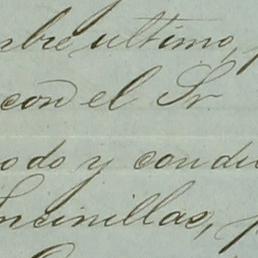 bre ultimo,
con el Sr
odo y condu
ncinillas,